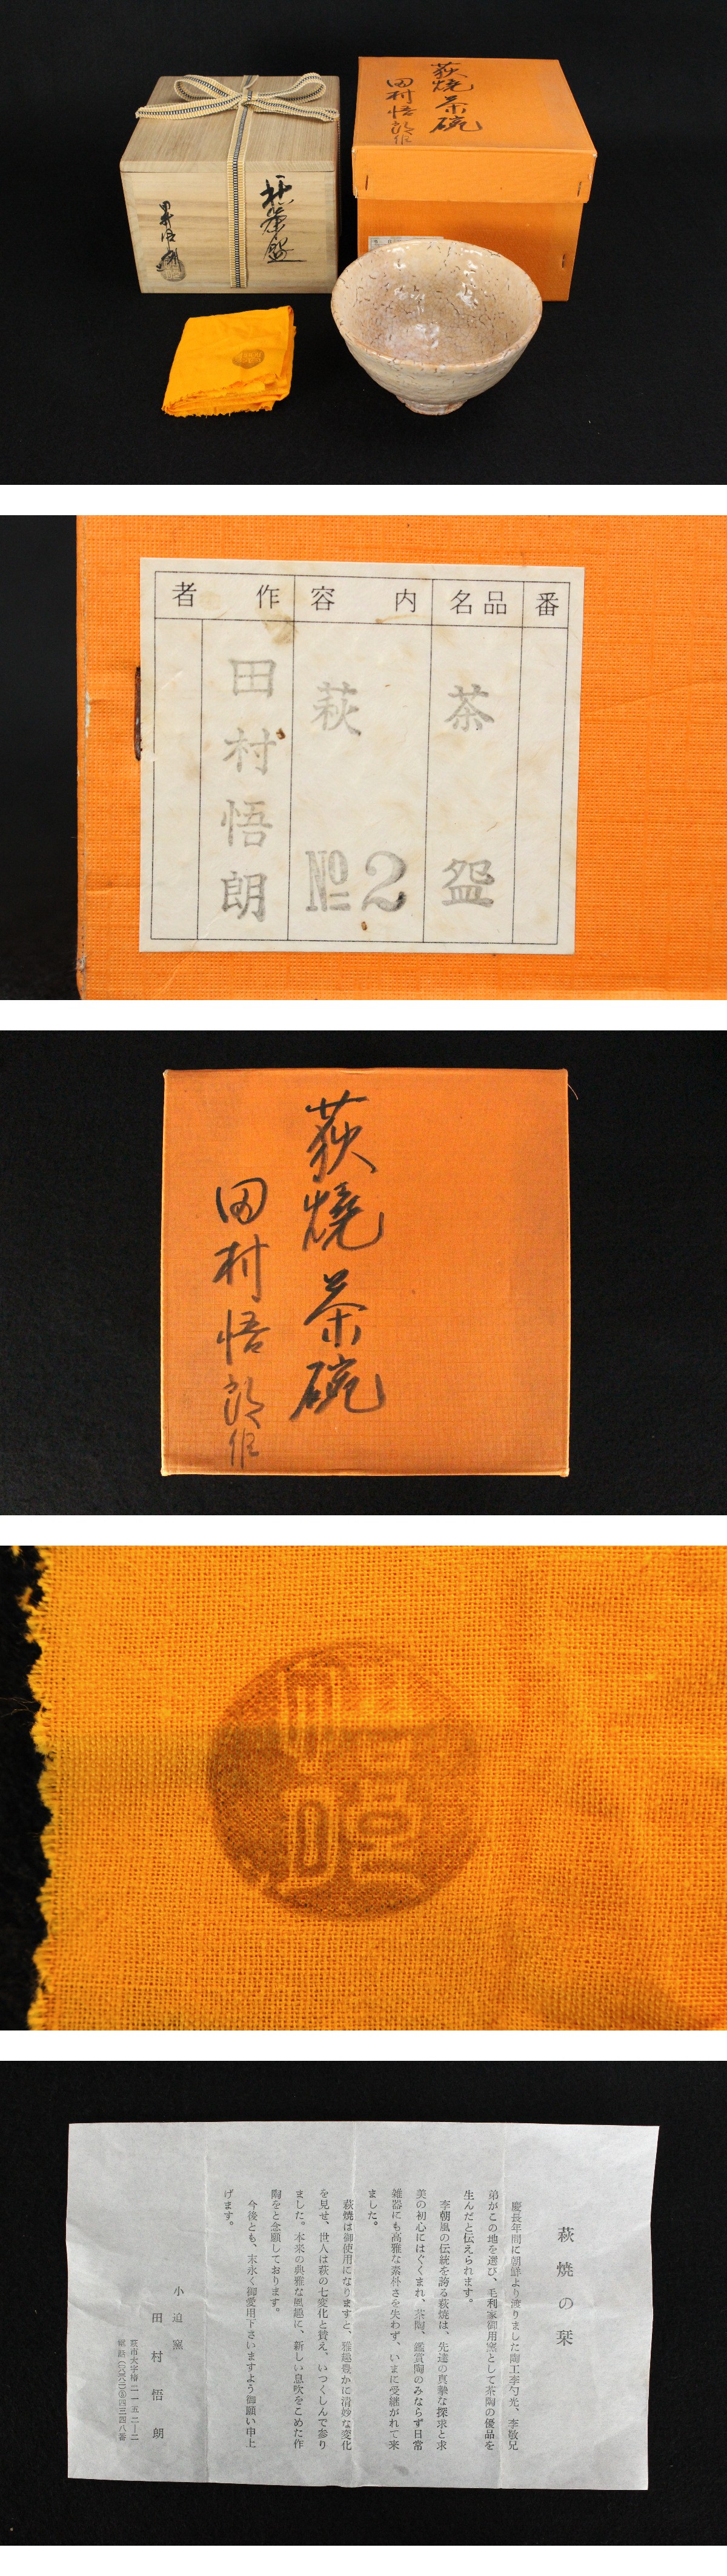 萩焼茶碗
田村悟郎作
萩茶盌
番
品名
内容
作者
茶盌
萩
№2
田村悟朗
萩燒茶碗
田村悟郎作
萩焼の栞
慶長年間に朝鮮より渡りました陶工李勺光、李敬兄
弟がこの地を選び、毛利家御用窯として茶陶の優品を
生んだと伝えられます。
李朝風の伝統を誇る萩焼は、先達の真摯な探求と求
美の初心にはぐくまれ、茶陶、鑑賞陶のみならず日常
雑器にも高雅な素朴さを失わず、いまに受継がれて来
ました。
萩焼は御使用になりますと、雅趣豊かに清妙な変化
を見せ、世人は萩の七変化と賛え、いつくしんで参り
ました。本来の典雅な風趣に、新しい息吹をこめた作
陶をと念願しております。
今後とも、末永く御愛用下さいますよう御願い申上
げます。
小迫窯
田村悟朗